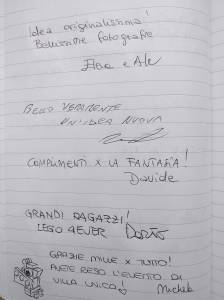 Idea originalissima!
Bellissime fotografie
Elisa e Ale
BELLO VERAMENTE
UN'IDEA NUOVA
COMPLIMENTI X LA FANTASIA!
Davide
GRANDI RAGAZZI!
LEGO 4EVER
GRAZIE MILLE X TUTTO!
AVETE RESO L'EVENTO DI
VILLA UNICO!
Michele